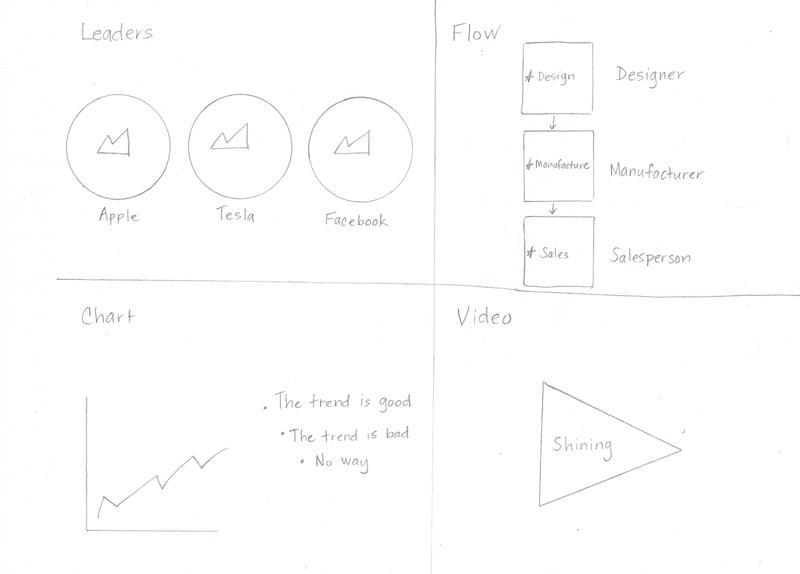 Leaders
Apple
Tesla
Facebook
Flow
* Design
Designer
* Manufacture
Manufacturer
* Sales
Salesperson
Chart
• The trend is good
• The trend is bad
• No way
Video
Shining